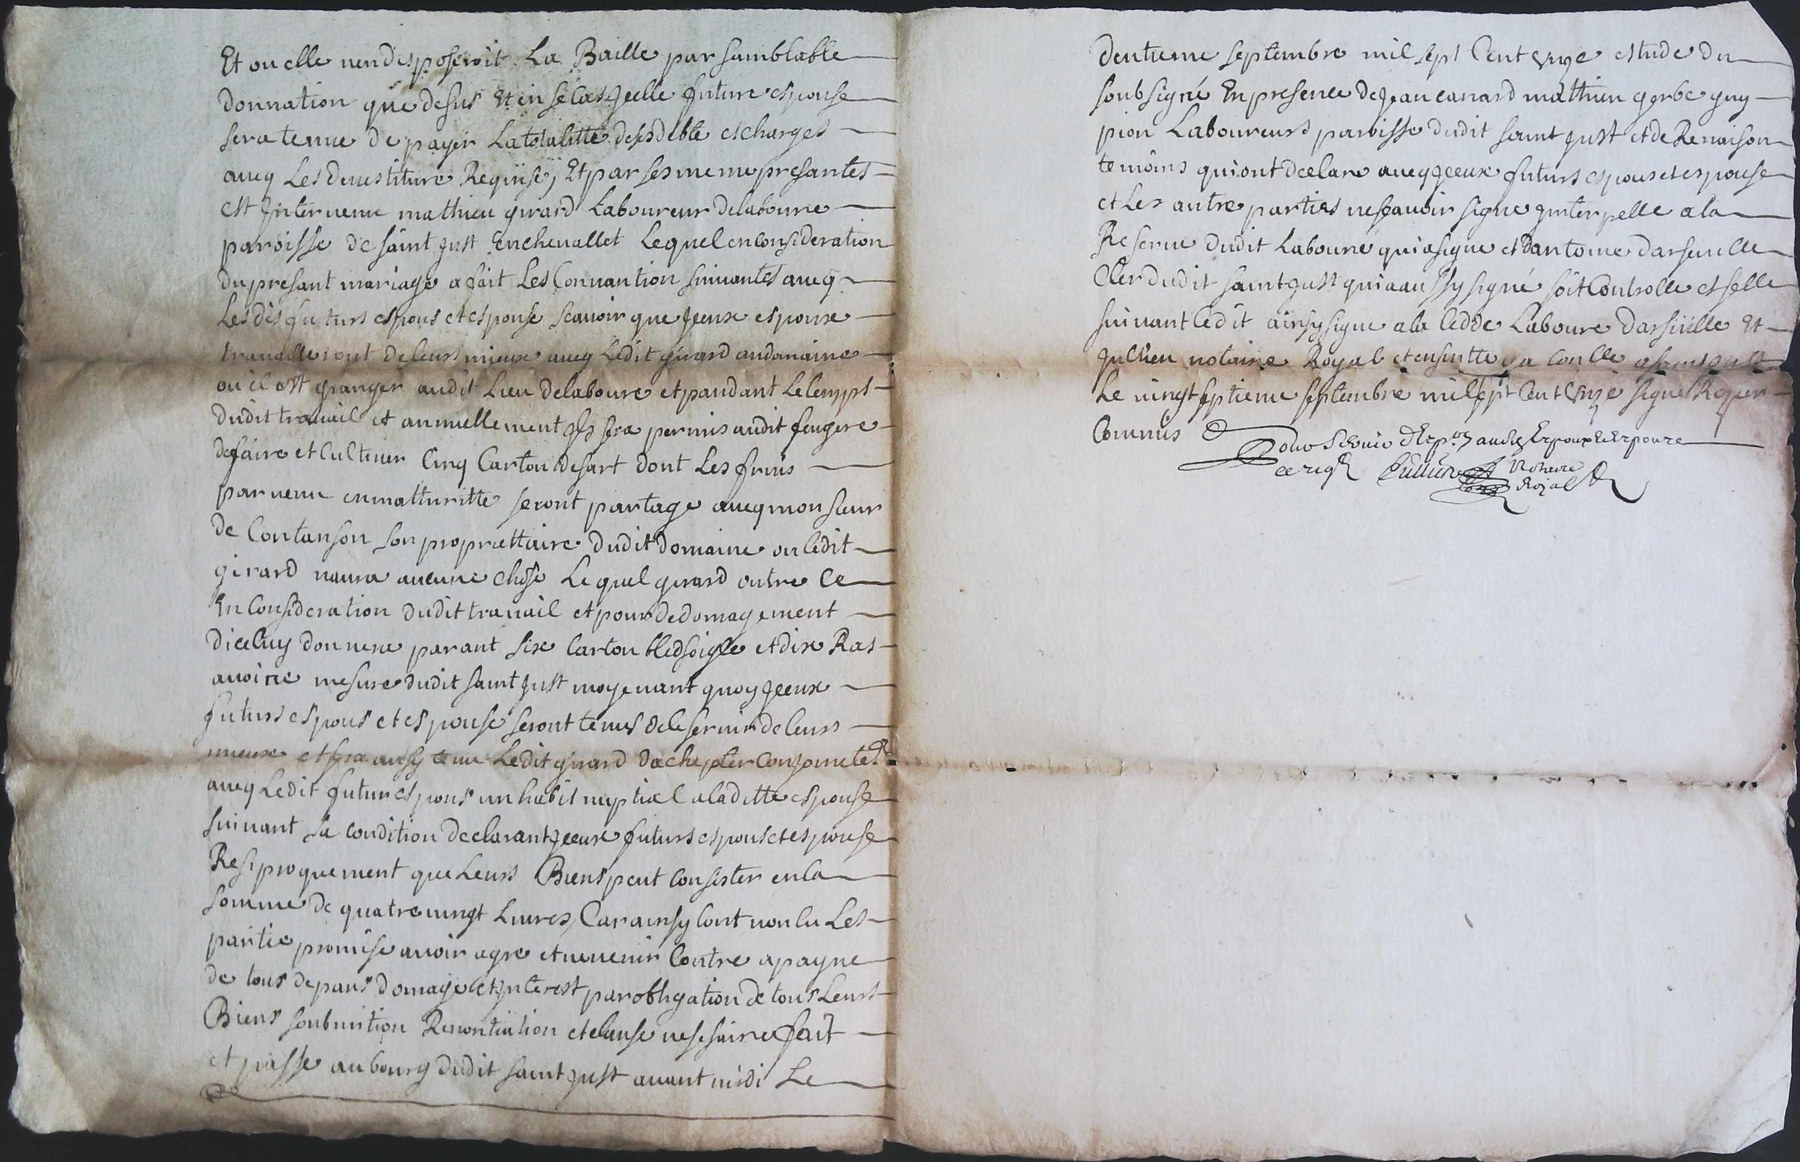 Et ou elle nendisposeroit La Baille par samblable
donnation que desus Et en se cas Jcelle future espouse
sera tenue de payer La totalitte desdebte et charges
aveq Les devestiture Requise, Et par ses meme presantes
est Jntervenu mathieu girard Laboureur delaboure
paroisse de saint Just Enchevallet Lequel en consideration
du presant mariage a fait Les Convantion suivantes aveq
Lesdis futurs espous et espouse scavoir que Jceux espoux
travalleront de leurs mieux aveq Ledit girard audomaine
ou il est granger audit Lieu delaboure et pandant Le temps
dudit travail et annuellement Jls sera permis audit feugere
de faire et Cultiver Cinq Carton desart dont Les fruis
parvenu en matturitte seront partage aveq monsieur
de Contanson son propriettaire dudit Domaine ou ledit
girard naura aucune chose Lequel girard outre ce
En Consideration dudit travail et pour dedomagement
Diceluy donnera par ant six Carton bled soigle et dix Ras
avoine mesure dudit saint Just moyenant quoy Jceux
futurs espous et espouse seront tenus de le servir de leurs
mieux et sera ausy tenu Ledit girard dachepter Conjointet
aveq Ledit futur espous un habit nuptial a laditte espouse
suivant sa condition declarant Jceux futurs espous et espouse
Resiproquement que Leurs Biens peut consister en la
somme de quatre vingt Livres, Car ainsy lont voulu Les
partie promise avoir agre et nevenir Contre a payne
de tous depans domage et Jnterest par obligation de tous Leurs
Biens soubmition Renontiation et clause nesesaire fait
et passe au bourg dudit saint Just avant midi Le
deutieme septembre mil sept Cent Unze estude du
soubsigné En presence de Jean canard mathieu gerbe guy
pion Laboureurs paroisse dudit saint Just et de Renaison
temoins qui ont declare aveq Jceux futurs espous et espouse
et Les autre parties nescavoir signe Jnterpelle a la
Reserve dudit Laboure qui a signe et dantoine darseville
Cler dudit saint Just qui a aussy signé soit Controlle et selle
suivant ledit ainsy signe a la cedde Laboure darseville Et
Jullien notaire Royal et ensuitte
Le vingt septieme septembre mil sept Cent Unze signe
Commis
Espoux et Espouze
ce rieq Jullien Notaire
Royal